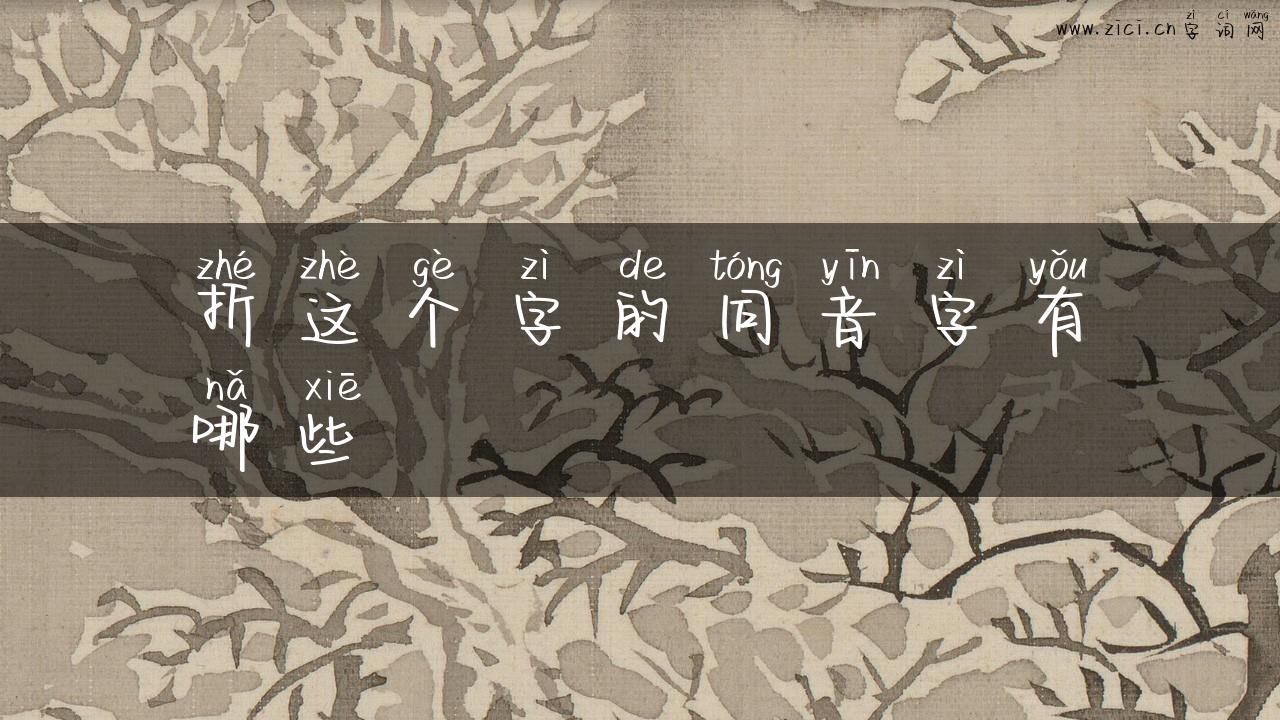 zì cí wǎng
www.zici.cn字词网
zhé zhè gè zì de tóng yīn zì yǒu
折这个字的同音字有
nǎ xiē
哪些